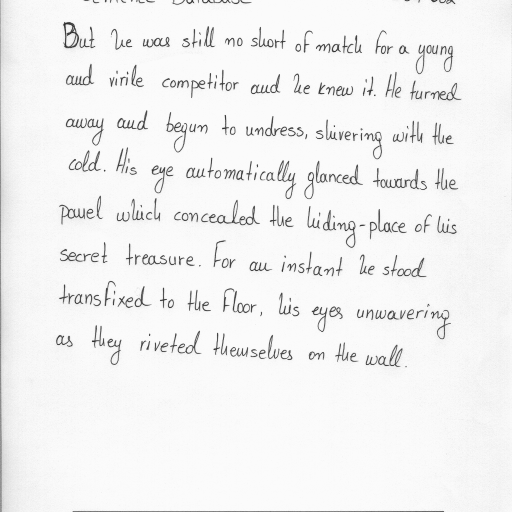 Sentence Database
But he was still no short of match for a young
and virile competitor and he knew it. He turned
away and begun to undress, shivering with the
cold. His eye automatically glanced towards the
panel which concealed the hiding-place of his
secret treasure. For an instant he stood
transfixed to the floor, his eyes unwavering
as they riveted themselves on the wall.